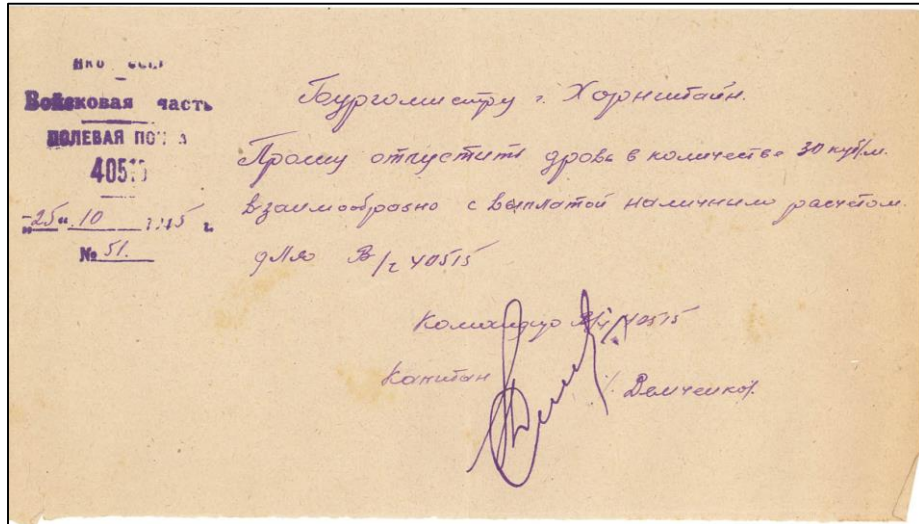 НКО СССР
Войсковая часть
ПОЛЕВАЯ ПОЧТА
40515
"25" 10 1945 г.
№ 51.
Бургомистру г. Хорнштайн.
Прошу отпустить дрова в количестве 30 куб/м.
взаимообразно с выплатой наличним расчётом
для В/ч 40515
Командир В/ч 40515
Капитан /Демченко/.